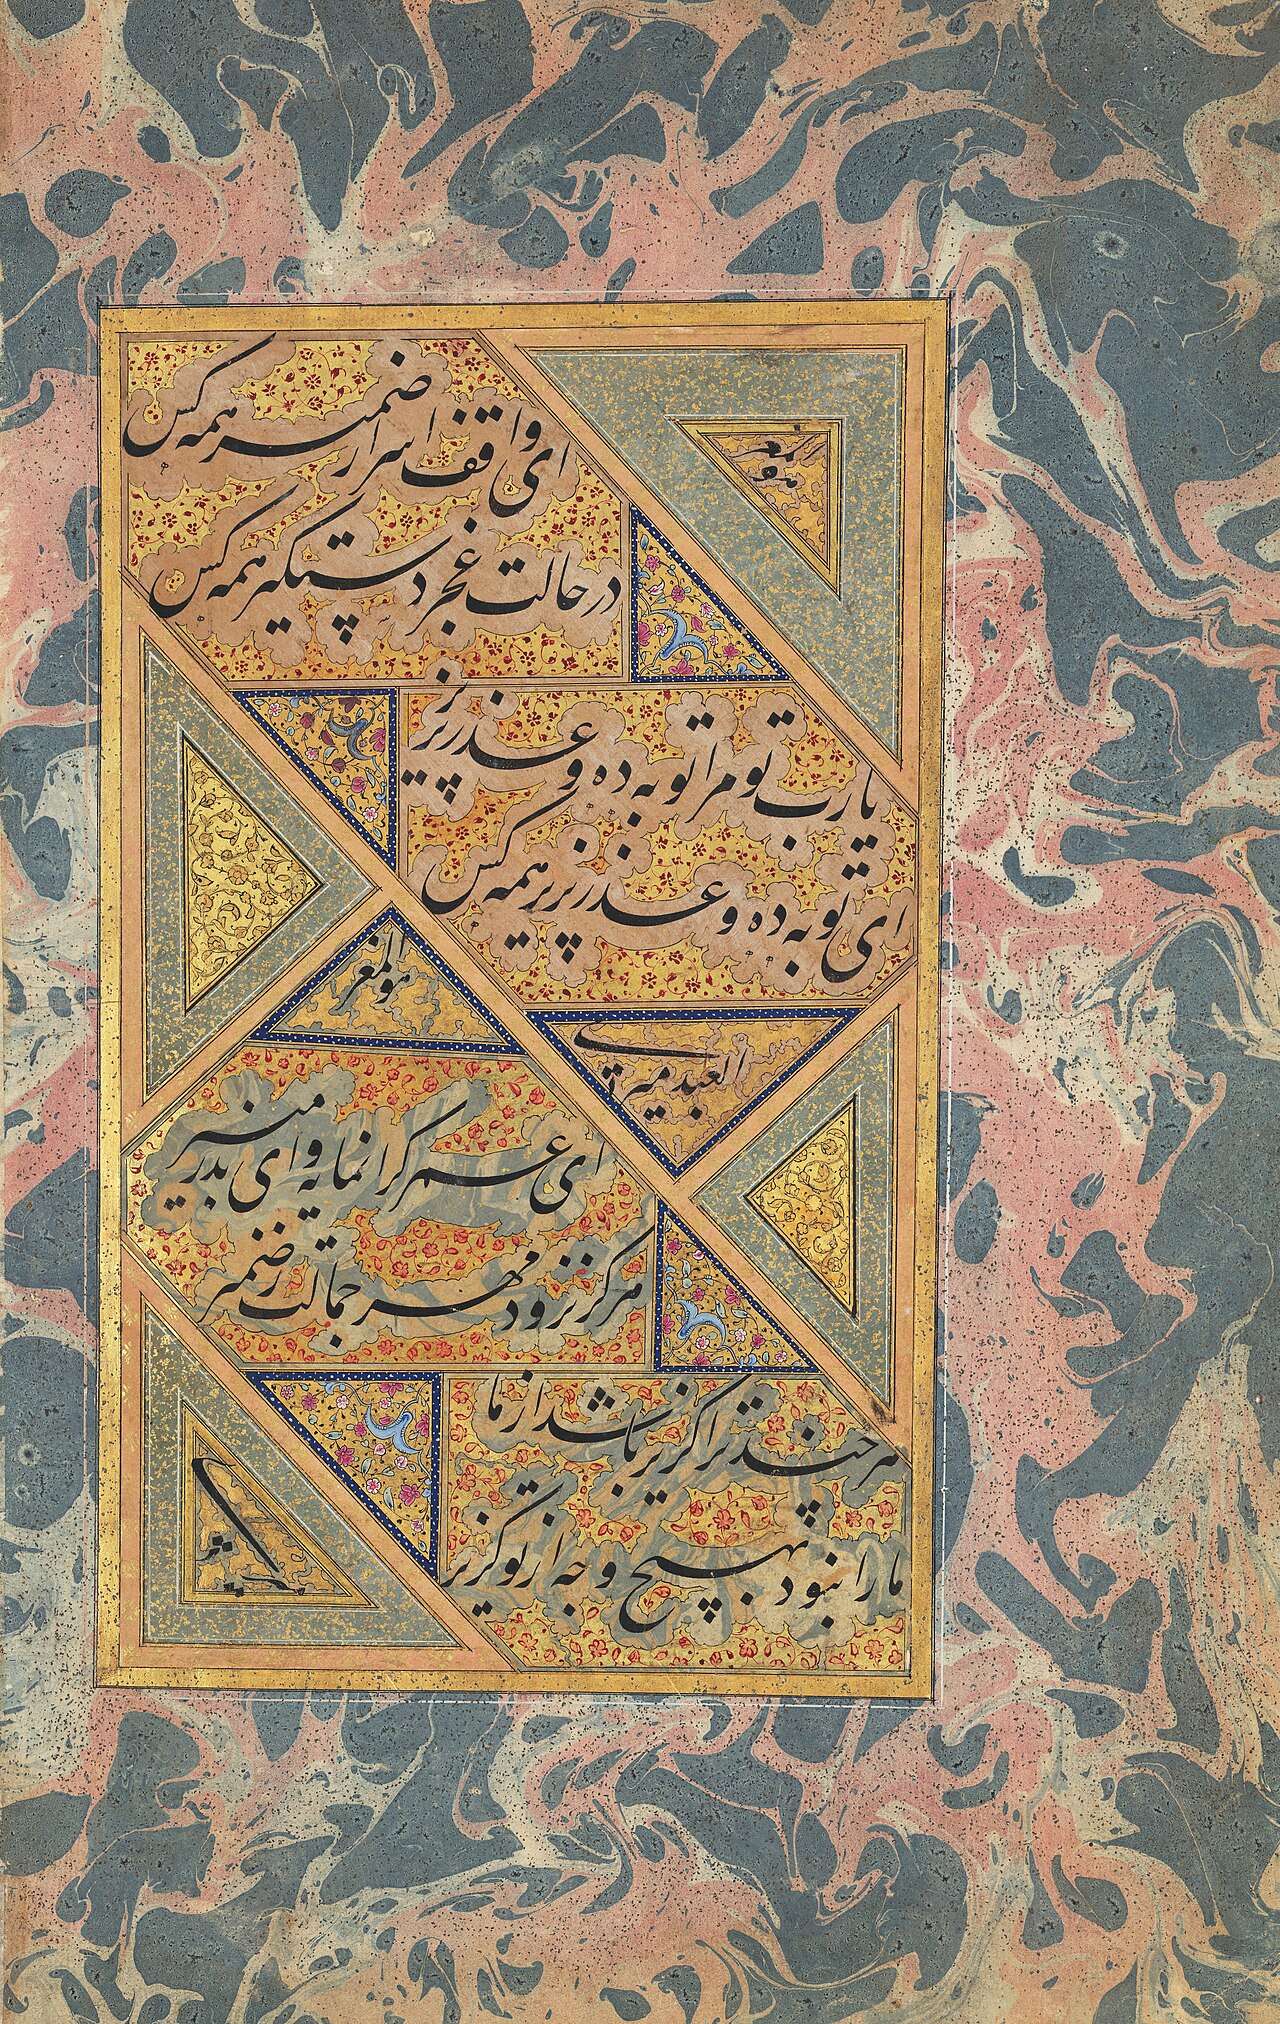 ای واقف اسرار ضمیر همه کس
در حالت عجز دستگیر همه کس
یا رب تو مرا توبه ده و عذر پذیر
ای توبه ده و عذر پذیر همه کس
هو المعز
العبد میر
ای عمر گرانمایه و ای بدر منیر
هرگز نرود مهر جمالت ز ضمیر
هر چند ترا گزیر باشد از ما
ما را نبود بهیچ وجه از تو گزیر